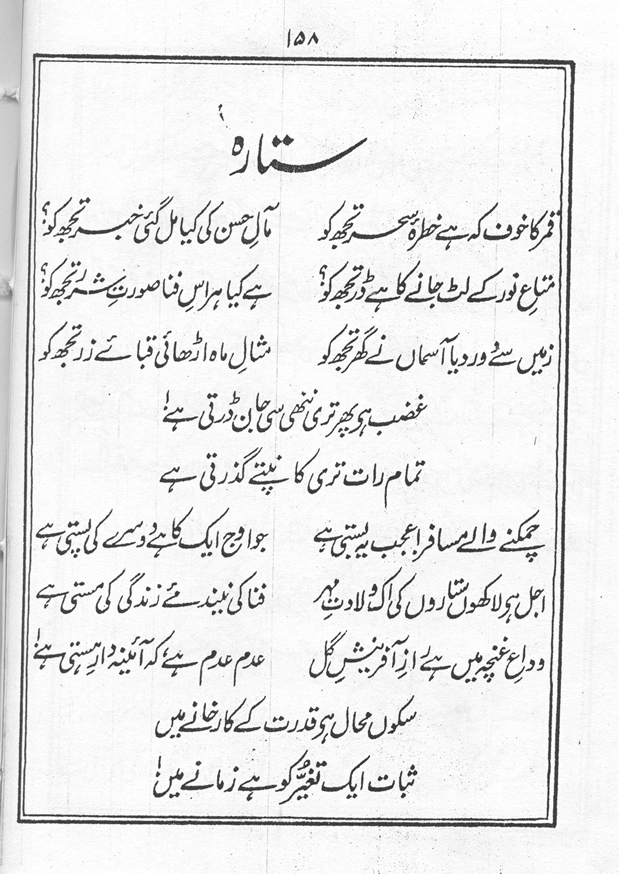 ۱۵۸
ستارہ
قمر کا خوف کہ ہے خطرۂ سحر تجھ کو مآلِ حسن کی کیا مل گئی خبر تجھ کو؟
متاعِ نور کے لٹ جانے کا ہے ڈر تجھ کو؟ ہے کیا ہراسِ فنا صورتِ شرر تجھ کو؟
زمیں سے دور دیا آسماں نے گھر تجھ کو مثالِ ماہ اڑھائی قبائے زر تجھ کو
غضب ہے پھر تری ننھی سی جان ڈرتی ہے!
تمام رات تری کانپتے گذرتی ہے
چمکنے والے مسافر! عجب یہ بستی ہے جو اوج ایک کا ہے دوسرے کی پستی ہے
اجل ہے لاکھوں ستاروں کی اک ولادتِ مہر فنا کی نیند مئے زندگی کی مستی ہے
وداعِ غنچہ میں ہے رازِ آفرینشِ گل عدم عدم ہے کہ آئینہ دارِ ہستی ہے!
سکوں محال ہے قدرت کے کارخانے میں
ثبات ایک تغیّر کو ہے زمانے میں!